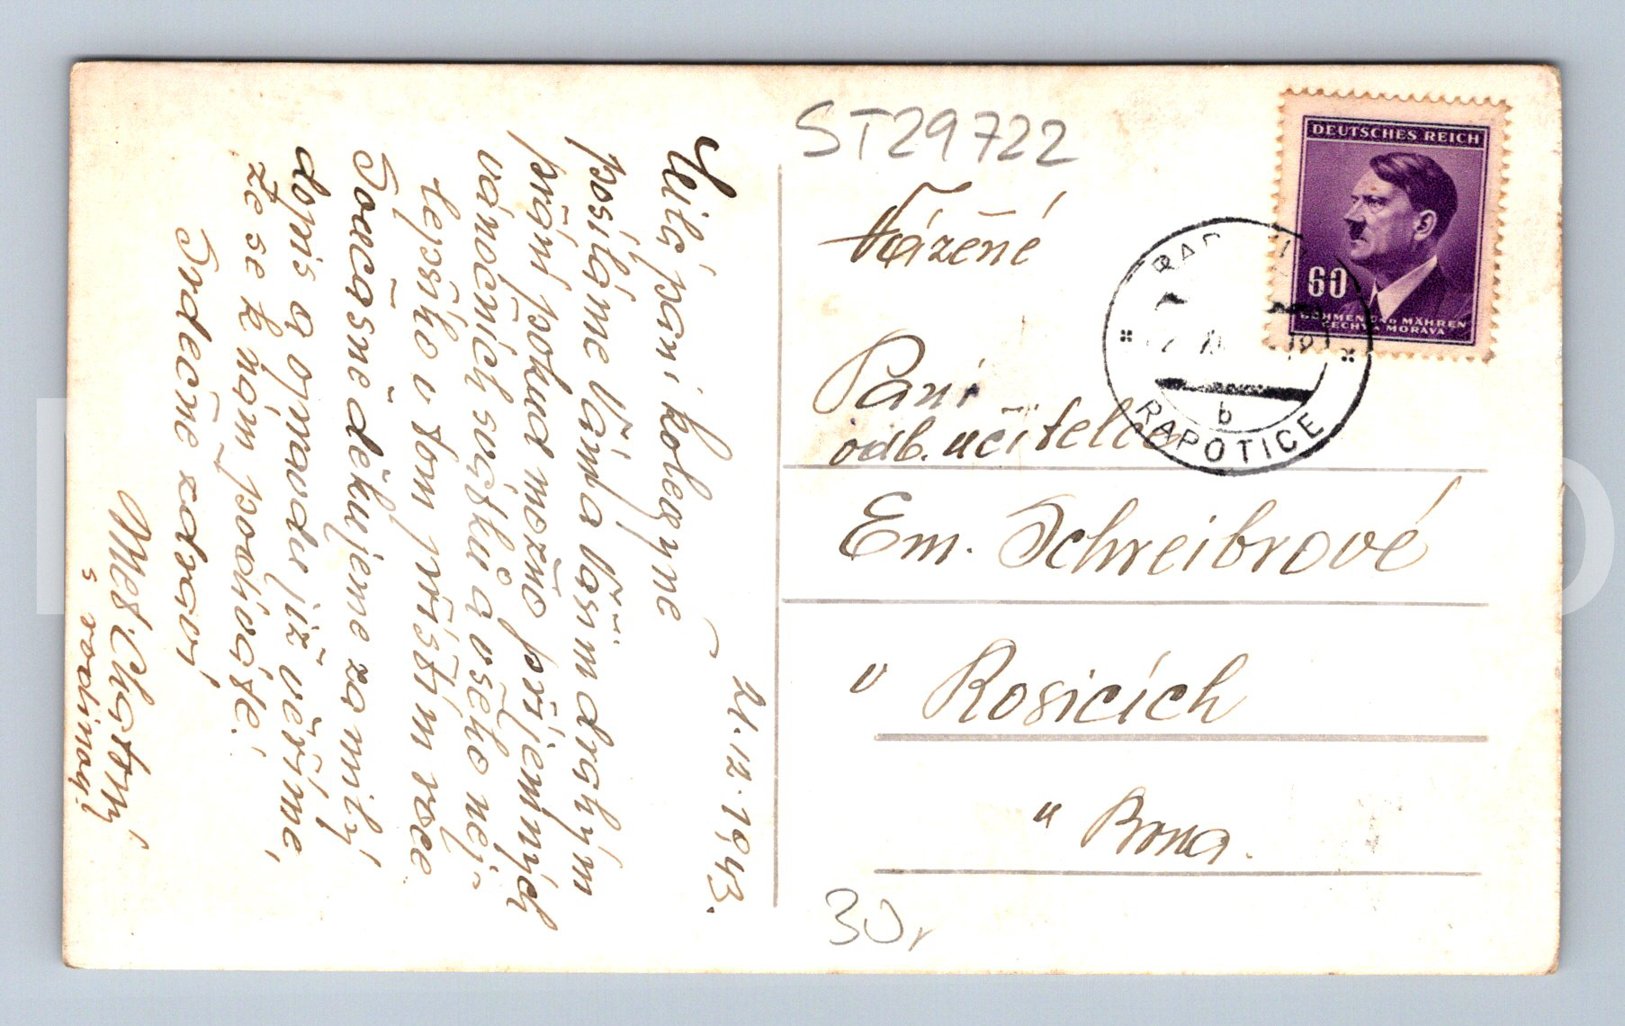 Milá paní kolegyně
21.12.1943.
posíláme Vám a Vašim drahým
přání pokud možno příjemných
vánočních svátků a všeho nej-
lepšího v tom příštím roce.
Současně děkujeme za milý
dopis a opravdu již věříme,
že se k nám podíváte.
Srdečně zdraví
s rodinou!
ST29722
Vážené
Paní
odb. učitelce
Em. Schreibrové
v Rosicích
u Brna.
30,
DEUTSCHES REICH
60
BÖHMEN UND MÄHREN
ČECHY A MORAVA
b
RAPOTICE